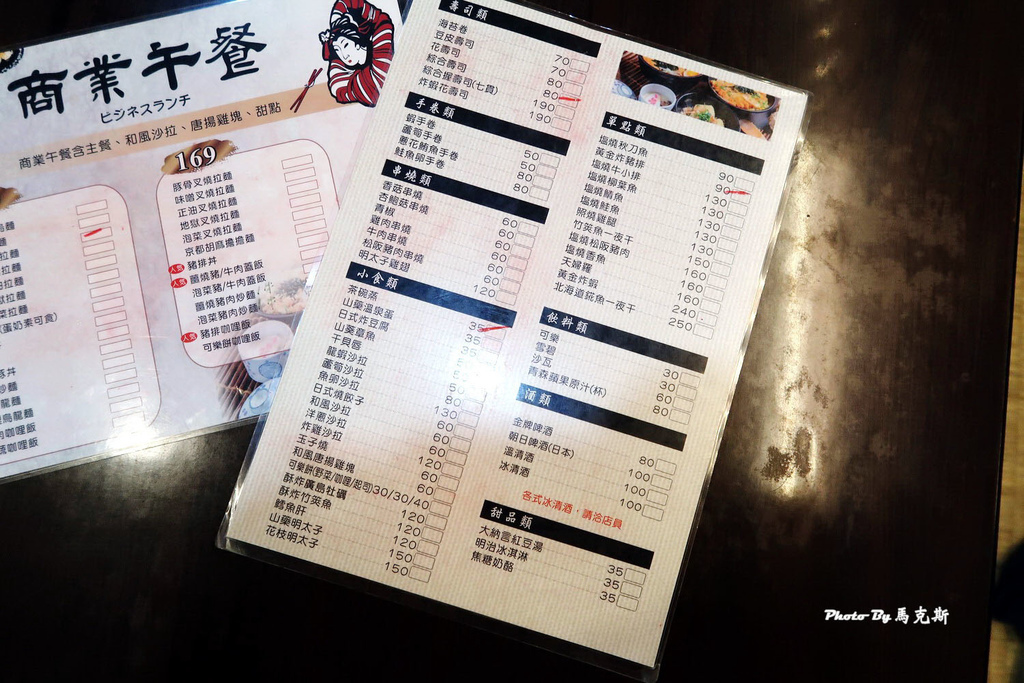 商業午餐
ビジネスランチ
商業午餐含主餐、和風沙拉、唐揚雞塊、甜點
169
豚骨叉燒拉麵
味噌叉燒拉麵
正油叉燒拉麵
地獄叉燒拉麵
泡菜叉燒拉麵
京都胡麻擔擔麵
人気 豬排丼
人気 醬燒豬/牛肉蓋飯
泡菜豬/牛肉蓋飯
醬燒豬肉炒麵
泡菜豬肉炒麵
人気 豬排咖哩飯
可樂餅咖哩飯
壽司類
海苔卷 70
豆皮壽司 70
花壽司 80
綜合壽司 80
綜合握壽司(七貫) 190
炸蝦花壽司 190
手卷類
蝦手卷 50
蘆筍手卷 50
蔥花鮪魚手卷 80
鮭魚卵手卷 80
串燒類
香菇串燒 60
杏鮑菇串燒 60
青椒 60
雞肉串燒 60
牛肉串燒 60
松阪豬肉串燒
明太子雞翅 120
小食類
茶碗蒸 35
山藥溫泉蛋 35
日式炸豆腐 35
山葵章魚
干貝唇
龍蝦沙拉 50
蘆筍沙拉 80
魚卵沙拉 130
日式燒餃子 60
和風沙拉 60
洋蔥沙拉 60
炸雞沙拉 120
玉子燒 60
和風唐揚雞塊 60
可樂餅(野菜/咖哩/起司)30/30/40
酥炸廣島牡礪 120
酥炸竹筴魚 120
鱈魚肝 120
山藥明太子 150
花枝明太子 150
單點類
塩燒秋刀魚 90
黃金炸豬排 90
塩燒牛小排 130
塩燒柳葉魚 130
塩燒鯖魚 130
塩燒鮭魚 130
照燒雞腿 130
竹筴魚一夜干 150
塩燒松阪豬肉 160
塩燒香魚 160
天婦羅 160
黃金炸蝦 240
北海道花魚一夜干 250
飲料類
可樂 30
雪碧 30
沙瓦 60
青森蘋果原汁(杯) 80
酒類
金牌啤酒 80
朝日啤酒(日本) 100
溫清酒 100
冰清酒 100
各式冰清酒，請洽店員
甜品類
大納言紅豆湯 35
明治冰淇淋 35
焦糖奶酪 35
Photo By 馬克斯